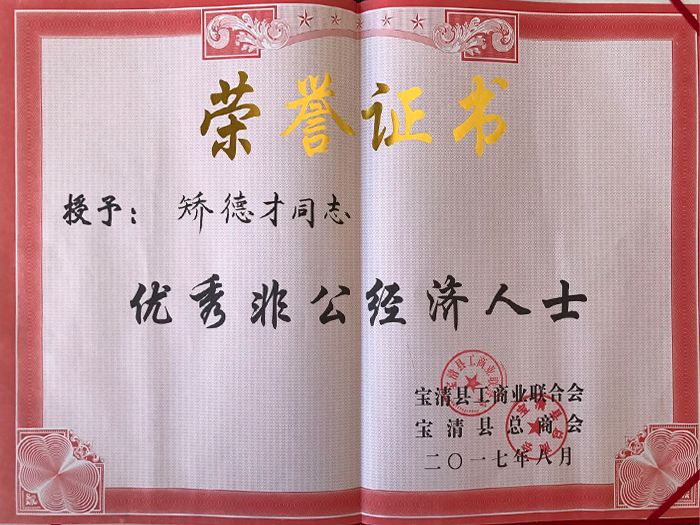 荣誉证书
授予：矫德才同志
优秀非公经济人士
宝清县工商业联合会
宝清县总商会
二〇一七年八月